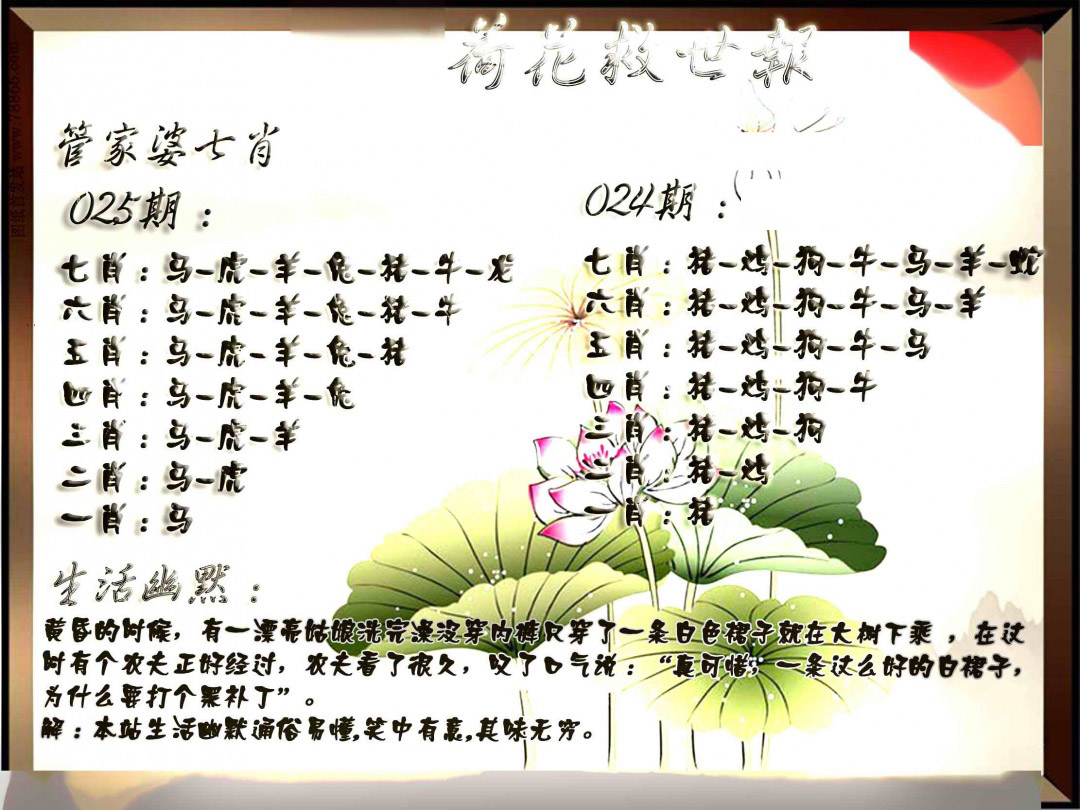 荷花救世報
管家婆七肖
025期：
七肖：马-虎-羊-兔-猪-牛-龙
六肖：马-虎-羊-兔-猪-牛
五肖：马-虎-羊-兔-猪
四肖：马-虎-羊-兔
三肖：马-虎-羊
二肖：马-虎
一肖：马
024期：
七肖：猪-鸡-狗-牛-马-羊-蛇
六肖：猪-鸡-狗-牛-马-羊
五肖：猪-鸡-狗-牛-马
四肖：猪-鸡-狗-牛
三肖：猪-鸡-狗
二肖：猪-鸡
一肖：猪
生活幽默：
黄昏的时候，有一漂亮姑娘洗完澡没穿内裤只穿了一条白色裙子就在大树下乘 ，在这
时有个农夫正好经过，农夫看了很久，叹了口气说：“真可惜，一条这么好的白裙子，
为什么要打个黑补丁”。
解：本站生活幽默通俗易懂,笑中有意,其味无穷。